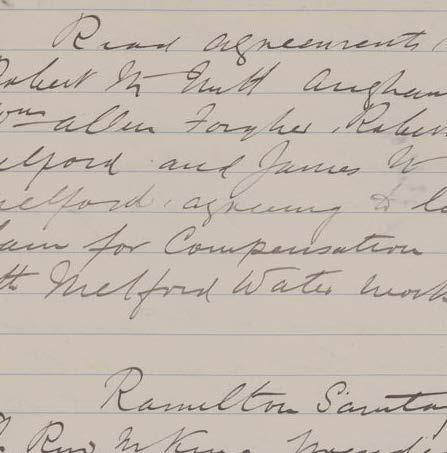 Read agreements
Robert M
Wm Allen Forgher, Robert
elford and James W
elford, agreeing to l
aim for Compensation
th Milford Water work
Ramelton Sanita
Rev M